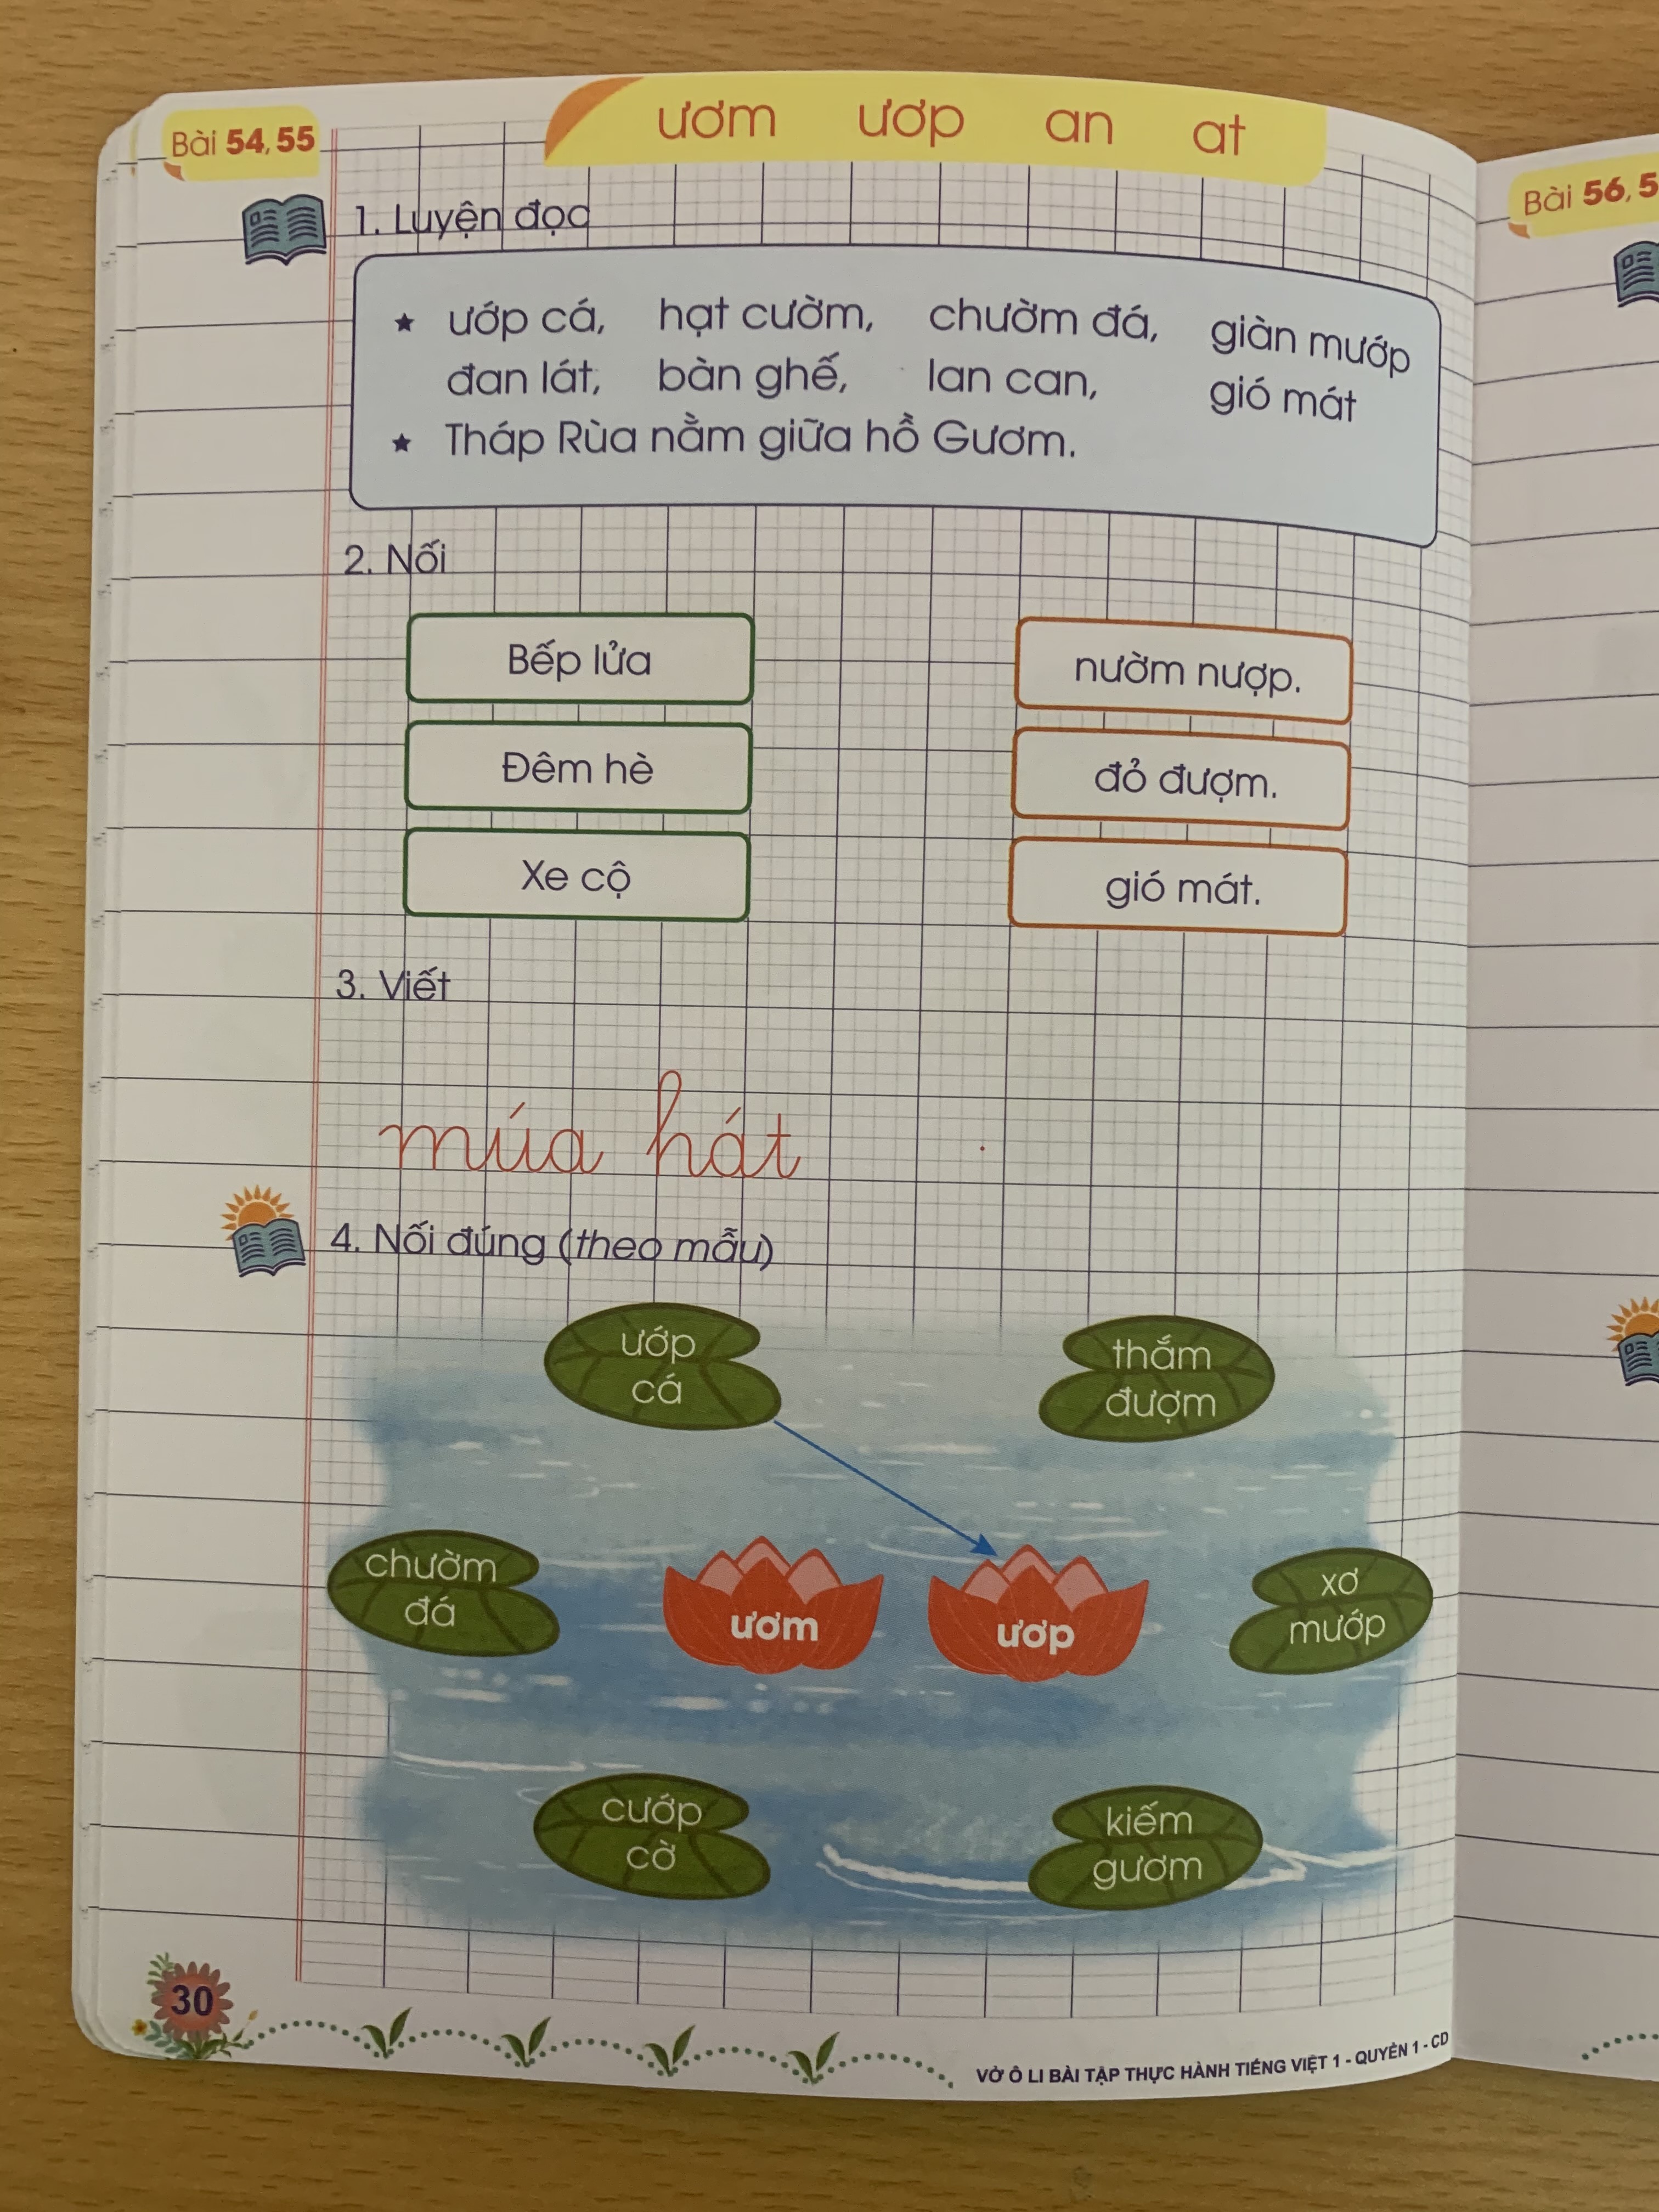 Bài 54, 55
ươm ươp an at
1. Luyện đọc
★ ướp cá, hạt cườm, chườm đá, giàn mướp
đan lát, bàn ghế, lan can, gió mát
★ Tháp Rùa nằm giữa hồ Gươm.
2. Nối
Bếp lửa nườm nượp.
Đêm hè đỏ đượm.
Xe cộ gió mát.
3. Viết
múa hát
4. Nối đúng (theo mẫu)
ướp
cá
thắm
đượm
chườm
đá
ươm
ươp
xơ
mướp
cướp
cờ
kiếm
gươm
30
VỞ Ô LI BÀI TẬP THỰC HÀNH TIẾNG VIỆT 1 - QUYỂN 1 - CD
Bài 56, 5